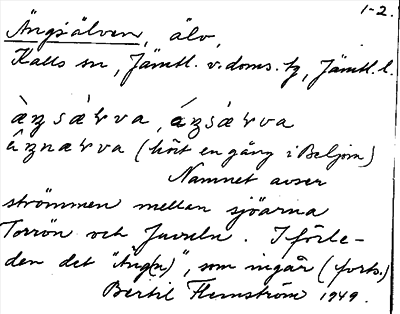 1-2.
Ängsälven, älv,
Kalls sn, Jämtl. v. doms. tg, Jämtl. l.
(hört en gång i Beljom)
Namnet avser
strömmen mellan sjöarna
Torrön och Juveln. I förle-
den det "Äng(n)", som ingår (forts.)
Bertil Flemström 1949.